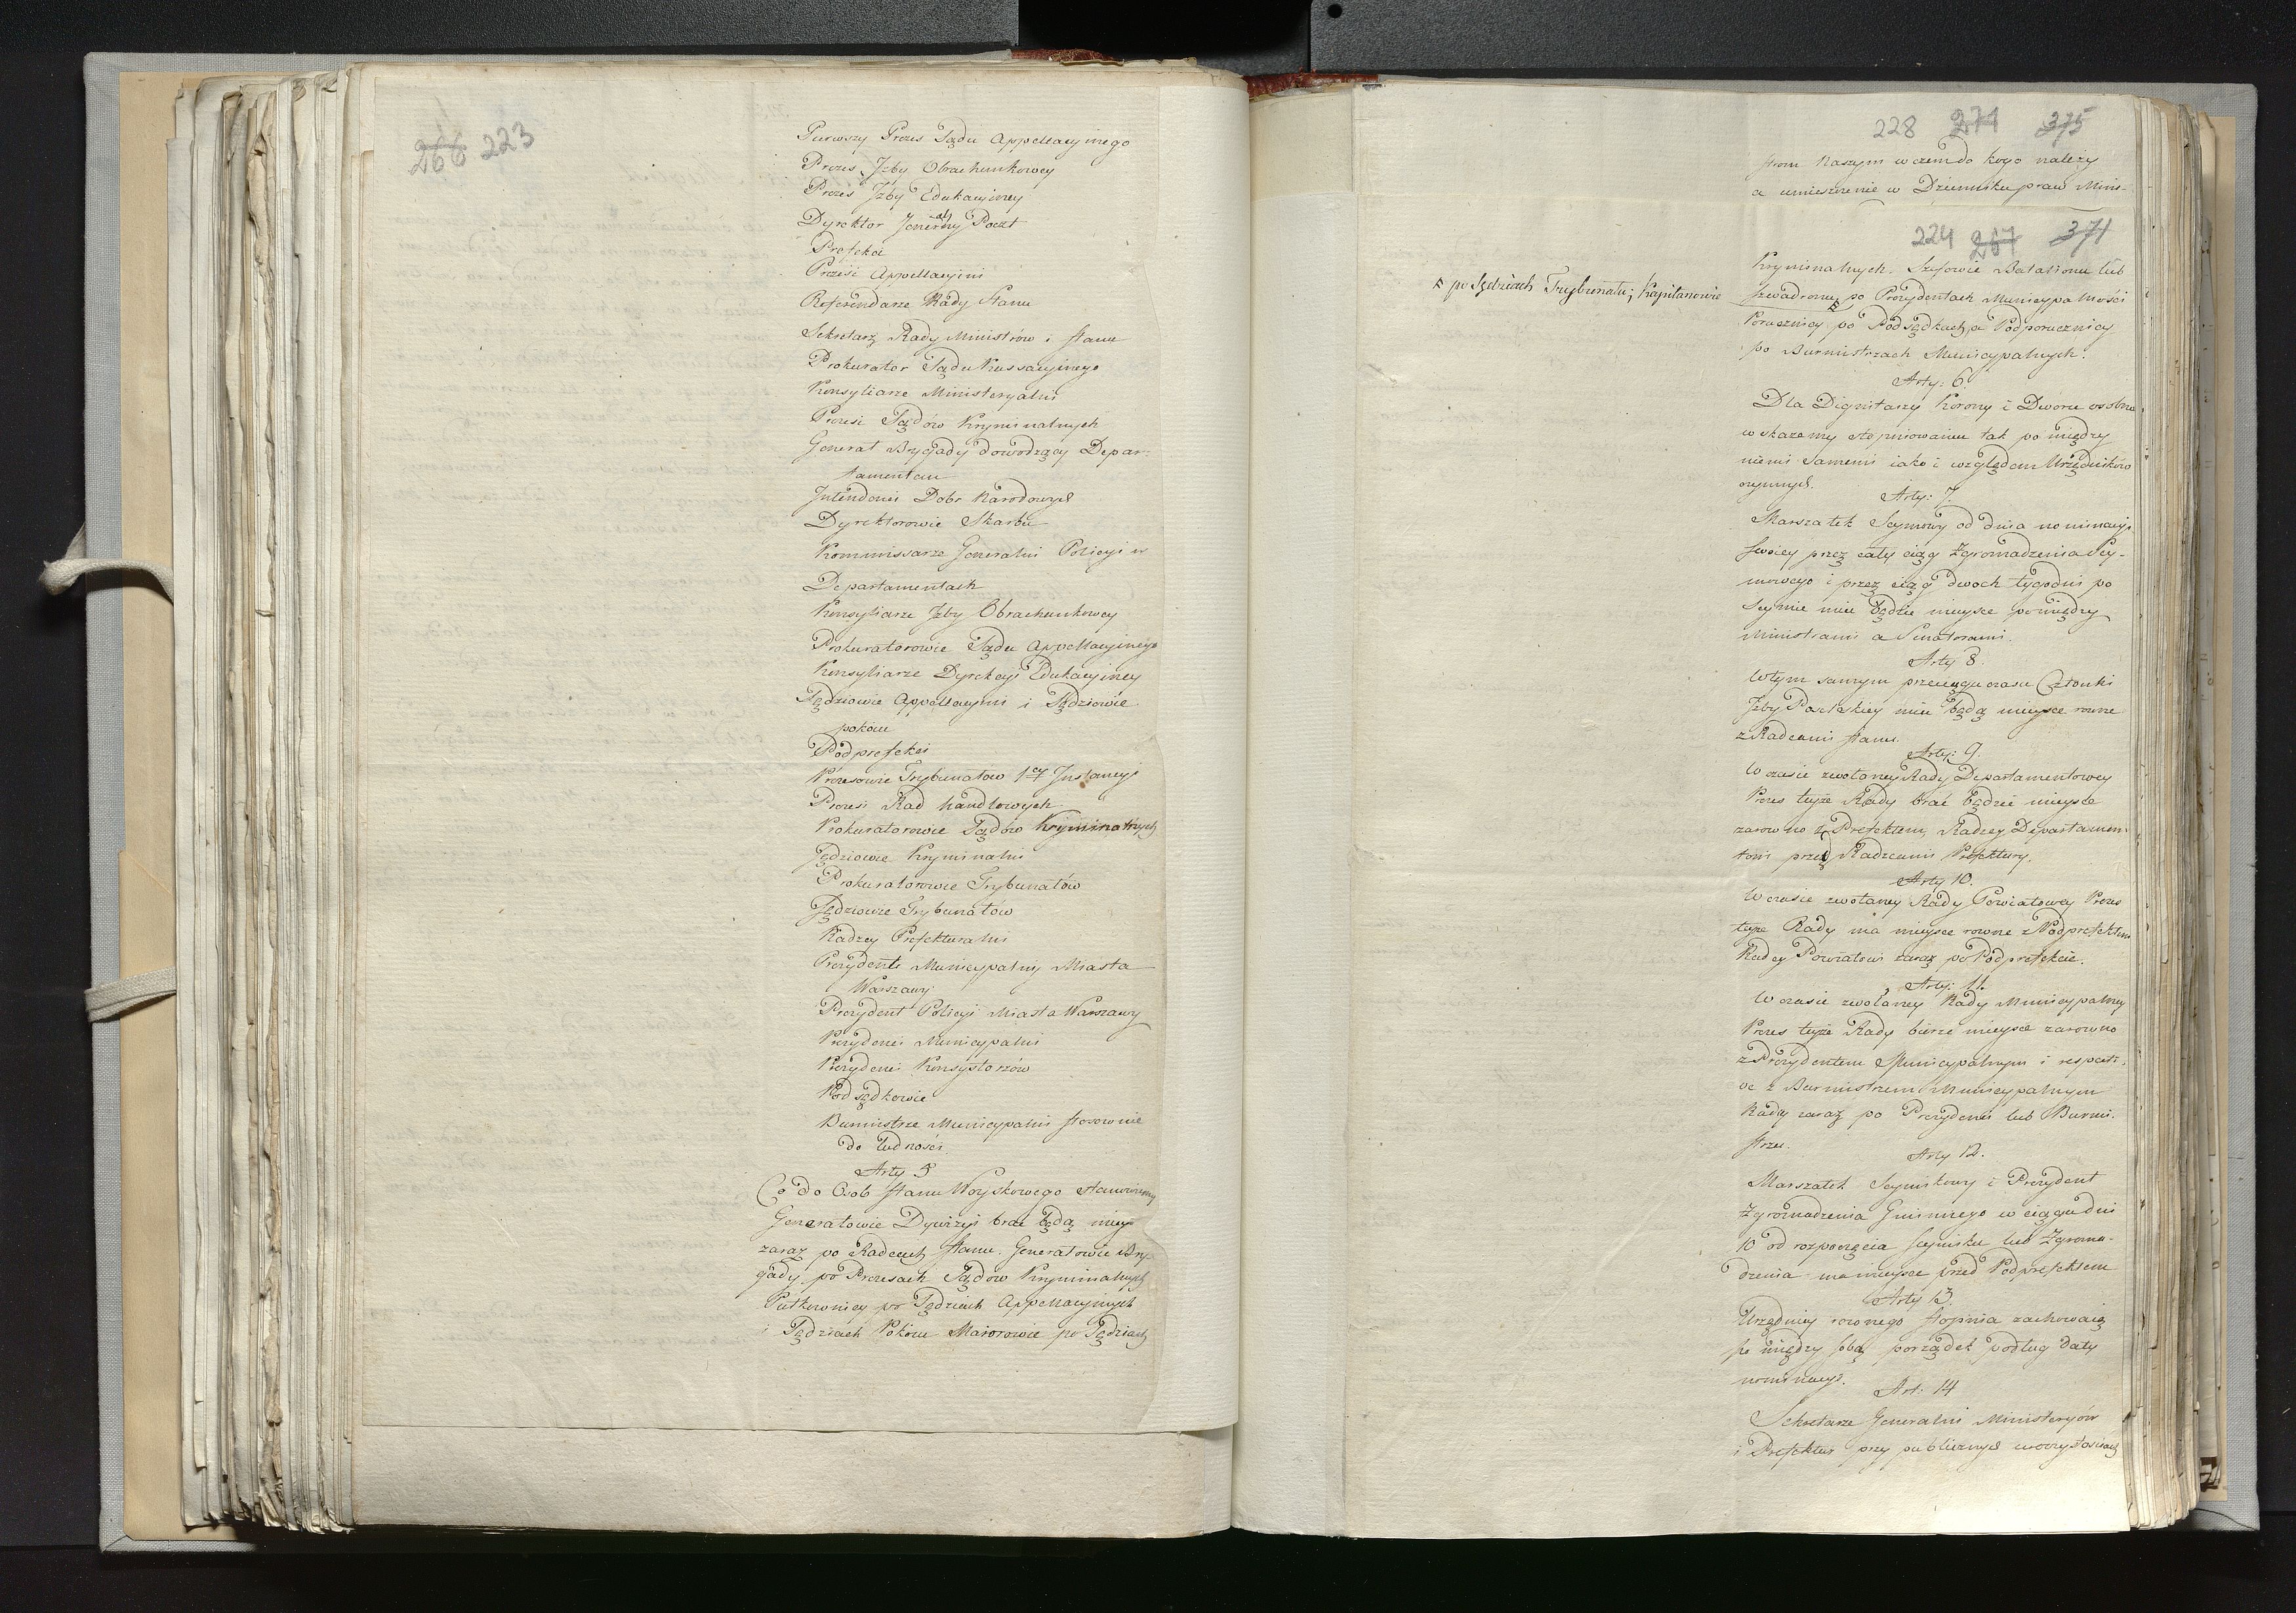 266 223
Pierwszy Prezes Sądu Appellacyinego
Prezes Jzby Obrachunkowey
Prezes Jzby Edukacyiney
Dyrektor Jeneralny Poczt
Prefekci
Prezesi Appellacyini
Referendarze Rady Stanu
Sekretarz Rady Ministrów i Stanu
Prokurator Sądu Kassacyinego
Konsyliarze Ministeryalni
Prezesi Sądów Kryminalnych
Generał Brygady dowodzący Depar-
tamentem
Jntendenci Dobr Narodowych
Dyrektorowie Skarbu
Kommissarze Generalni Policyi w
Departamentach
Konsyliarze Jzby Obrachunkowey
Prokuratorowie Sądu Appellacyinego
Konsyliarze Dyrekcyi Edukacyiney
Sędziowie Appellacyini i Sędziowie
pokoiu
Podprefekci
Prezesowie Trybunałow 1ey Jnstancyi
Prezesi Rad handlowych
Prokuratorowie Sądów Kryminalnych
Sędziowie Kryminalni
Prokuratorowie Trybunałów
Sędziowie Trybunałów
Radzcy Prefekturalni
Prezydent Municypalny Miasta
Warszawy
Prezydent Policyi Miasta Warszawy
Prezydenci Municypalni
Prezydenci Konsystorzów
Podsędkowie
Burmistrze Municypalni stosownie
do ludności
Arty 5
Co do Osob stanu Woyskowego stanowiemy
Generałowie Dywizyi brać będą mieysce
zaraz po Radcach stanu. Generałowie Bry-
gady po Prezesach Sądow Kryminalnych
Pułkownicy po Sędziach Appellacyinych
i Sędziach Pokoiu Maiorowie po Sędziach
228 271 375
stom Naszym w czem do kogo należy
a umieszczenie w Dzienniku praw Minis-
224 267 371
Kryminalnych. Szefowie Batalionu lub
szwadronu po Prezydentach Municypalności
po Sędziach Trybunału; Kapitanowie
Porucznicy po Podsędkach, a Podporucznicy
po Burmistrzach Municypalnych.
Arty: 6.
Dla Dignitarzy Korony i Dworu osobne
wskażemy stopniowanie tak pomiędzy
niemi samemi iako i względem Urzędników
innych.
Arty: 7.
Marszałek Seymowy od dnia nominacyi
swoiey przez cały ciąg Zgromadzenia Sey-
mowego i przez ciąg dwoch tygodni po
Seymie mieć będzie mieysce pomiędzy
Ministrami a Senatorami.
Arty 8.
W tym samym przeciągu czasu Członki
Jzby Poselskiey mieć będą mieysce rowne
z Radcami stanu.
Arty: 9.
W czasie zwołaney Rady Departamentowey
Prezes teyże Rady brać będzie mieysce
zarowno z Prefektem, Radzcy Departamen-
towi przed Radzcami Prefektury.
Arty 10.
W czasie zwołaney Rady Powiatowey Prezes
teyże Rady ma mieysce rowne z Podprefektem
Radcy Powiatowi zaraz po Podprefekcie.
Arty: 11.
W czasie zwołaney Rady Municypalney
Prezes teyże Rady bierze mieysce zarowno
z Prezydentem Municypalnym i respecti-
ve z Burmistrzem Municypalnym
Radcy zaraz po Prezydencie lub Burmi-
strzu.
Arty 12.
Marszałek Seymikowy i Prezydent
Zgromadzenia Gminnego w ciągu dni
10 od rozpoczęcia seymiku lub Zgroma-
dzenia ma mieysce przed Podprefektem
Arty 13.
Urzędnicy rownego stopnia zachowaią
po między sobą porządek podług daty
nominacyi.
Art: 14
Sekretarze Generalni Ministeryów
i Prefektur przy publicznych uroczystościach